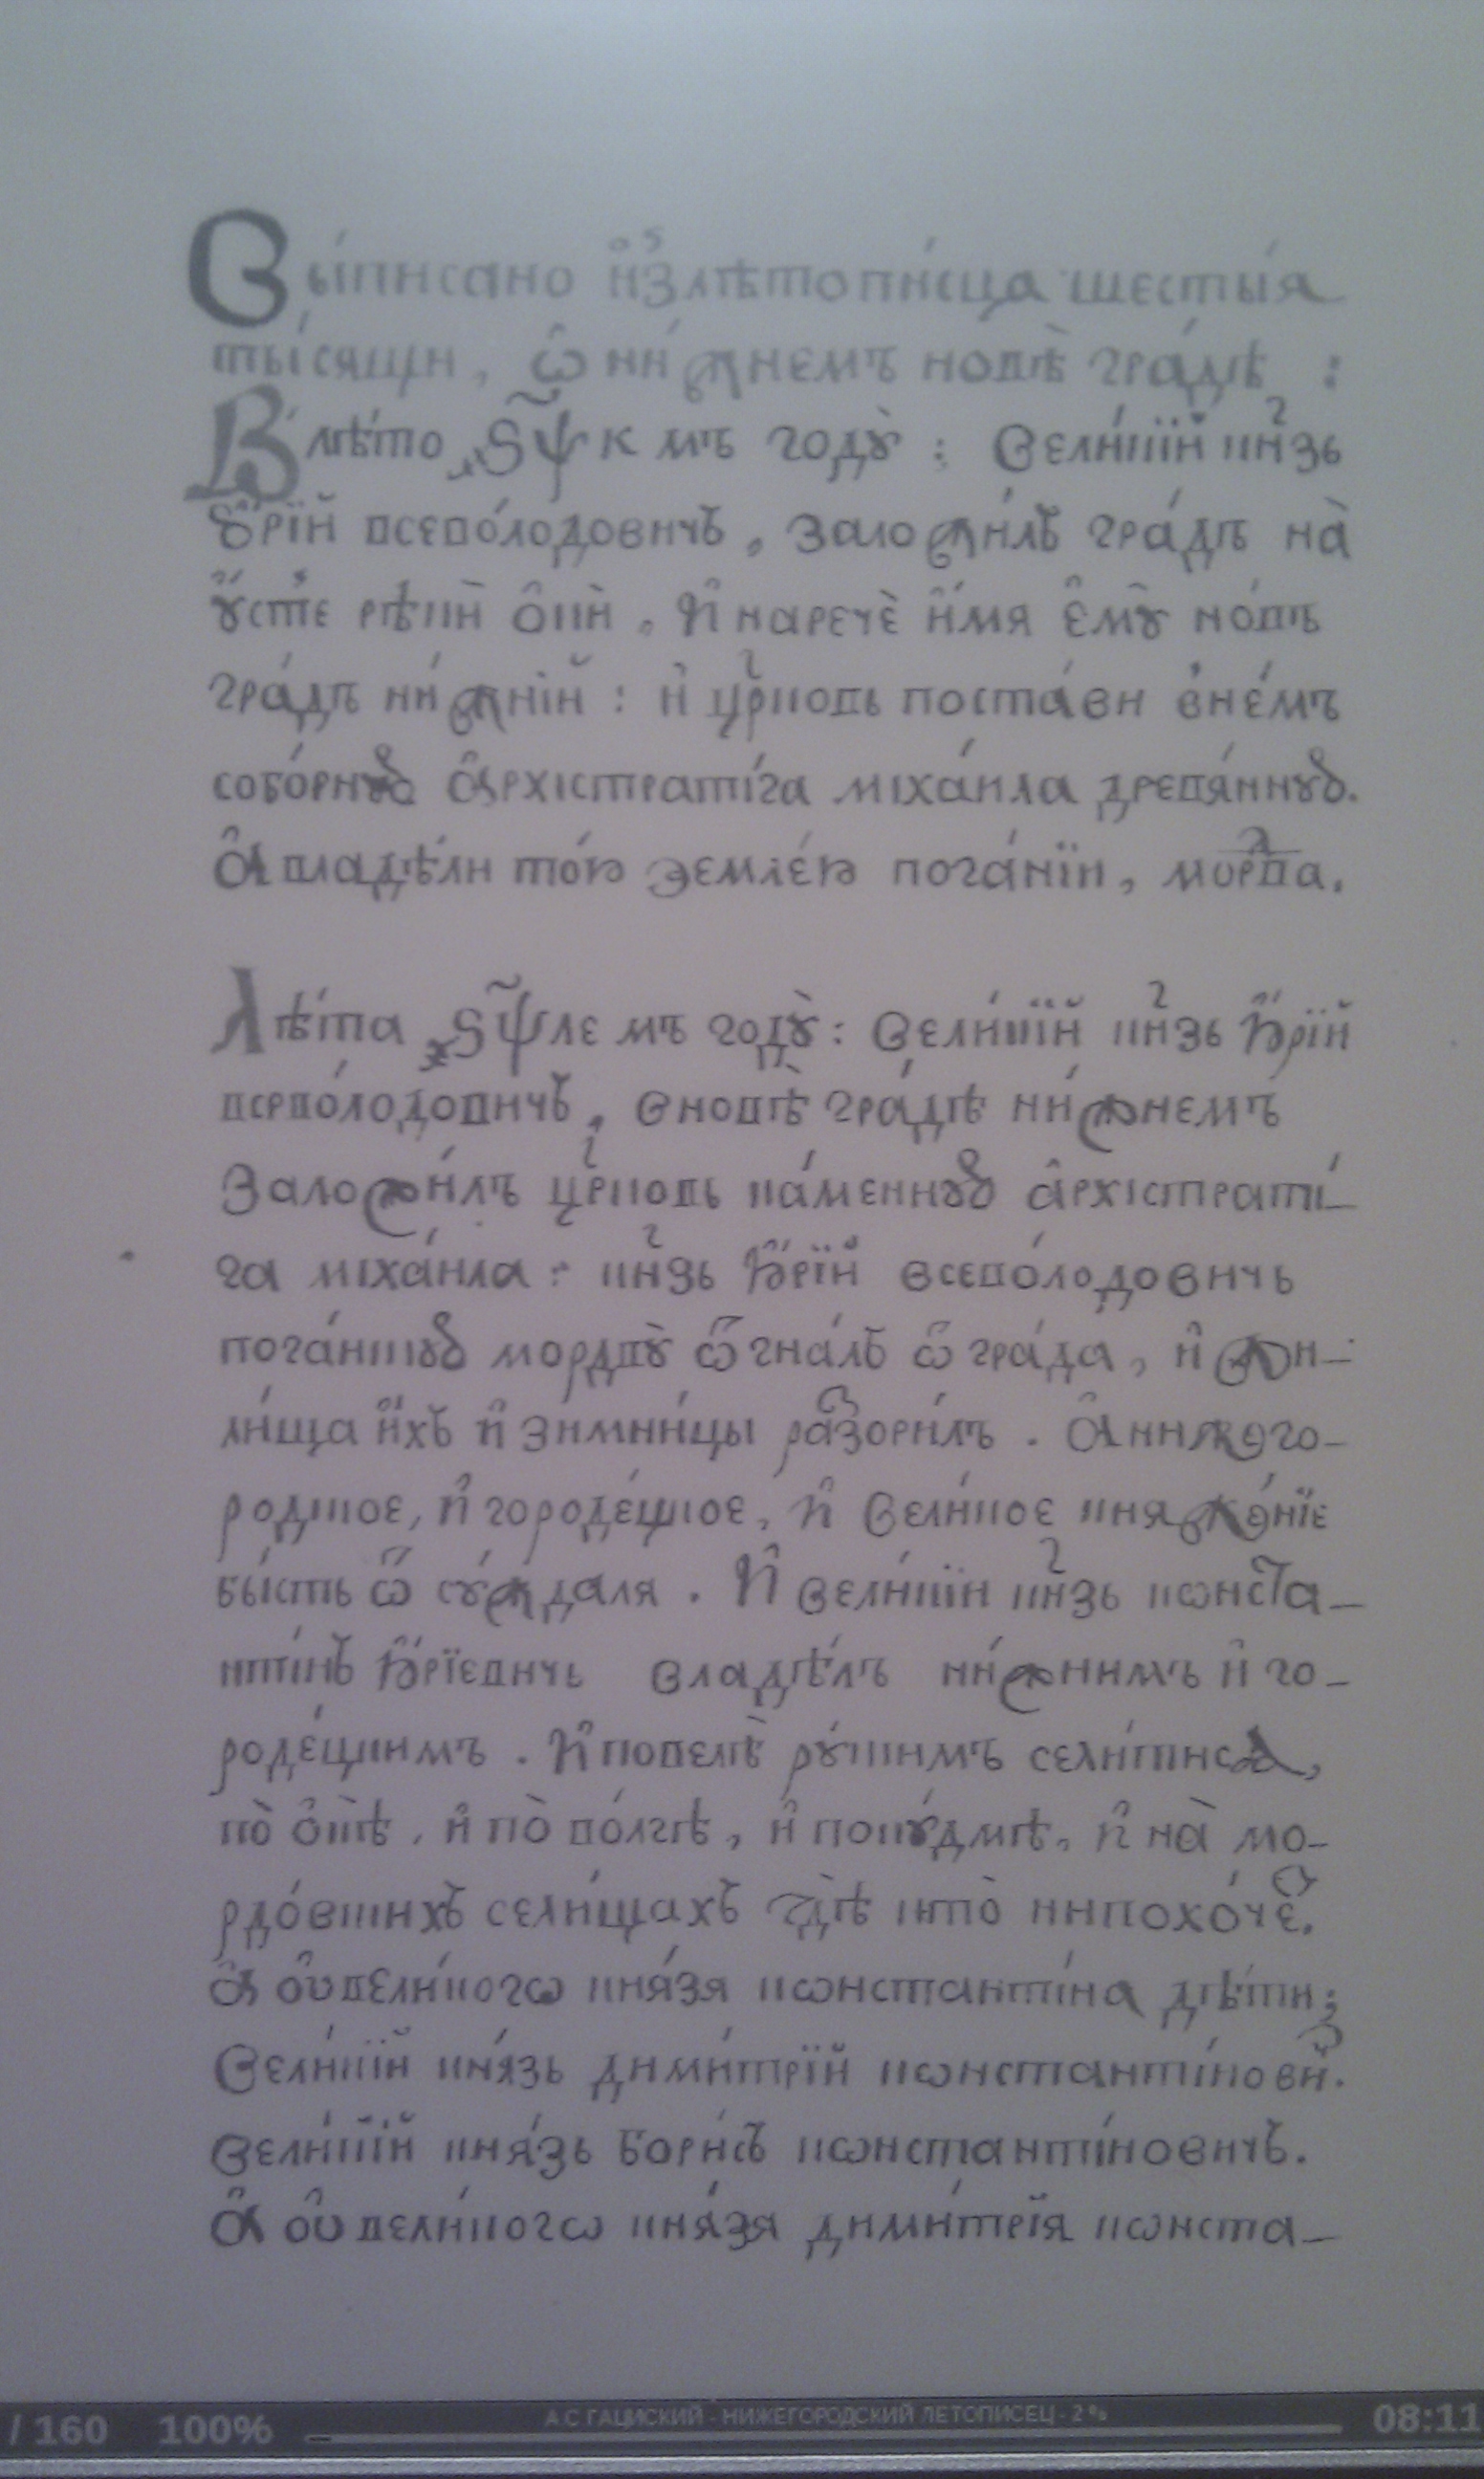 Вы́писано и҆з̾лѣтопи́сца шесты́я
ты́сящи, ѡ҆ ни́жнемъ новѣ̀ гра́дѣ :
В лѣ́то ҂ѕ҃ѱк мъ годꙋ̀ : Вели́кїй кн҃зь
Ю҆́рїй всево́лодовичъ, заложи́лъ гра́дъ на̀
ᲂу҆́стїе рѣкѝ ѻ҆кѝ, и҆ наречѐ и҆́мя є҆мꙋ̀ но́въ
гра́дъ ни́жнїй : и҆ цр҃ковь поста́ви в не́мъ
собо́рнꙋю а҆рхїстрати́га мїха́ила древя́ннꙋю.
А҆ владѣ́ли то́ю земле́ю пога́нїи, мордва.
Лѣ́та ҂ѕ҃ѱле мъ годꙋ̀ : Вели́кїй кн҃зь Ю҆́рїй
всево́лодовичъ, в новѣ̀ гра́дѣ ни́жнемъ
Заложи́лъ цр҃ковь ка́меннꙋю а҆рхїстрати́-
га мїха́ила : кн҃зь Ю҆́рїй всево́лодовичь
пога́нꙋю мордвꙋ̀ ѿгна́лъ ѿ гра́да, и҆ жи-
ли́ща и҆́хъ и҆ зимни́цы разори́лъ. А҆ нижего-
родкое, и҆ городе́цкое, и҆ вели́кое княже́нїе
бы́сть ѿ сꙋ́ждаля. И҆ вели́кїи кн҃зь кѡнста-
нти́нъ Ю҆́рїевичь владѣ́лъ ни́жнимъ и҆ го-
роде́цкимъ. И҆ повелѣ̀ рꙋ́скимъ сели́тися,
по̀ ѻ҆кѣ̀, и҆ по̀ во́лгѣ, и҆ по кꙋ́дмѣ, и҆ на̀ мо-
рдо́вскихъ сели́щахъ гдѣ̀ кто̀ ни похо́че.
А҆ ᲂу҆ вели́когѡ кня́зя кѡнстанти́на дѣ́ти;
Вели́кїй кня́зь дими́трїй кѡнстанти́нови.
Вели́кїй кня́зь бори́съ кѡнстанти́новичъ.
А҆ ᲂу҆ вели́когѡ кня́зя дими́трїя кѡнста-
/ 160 100% А С ГАЦИСКИЙ - НИЖЕГОРОДСКИЙ ЛЕТОПИСЕЦ - 2 % 08:11